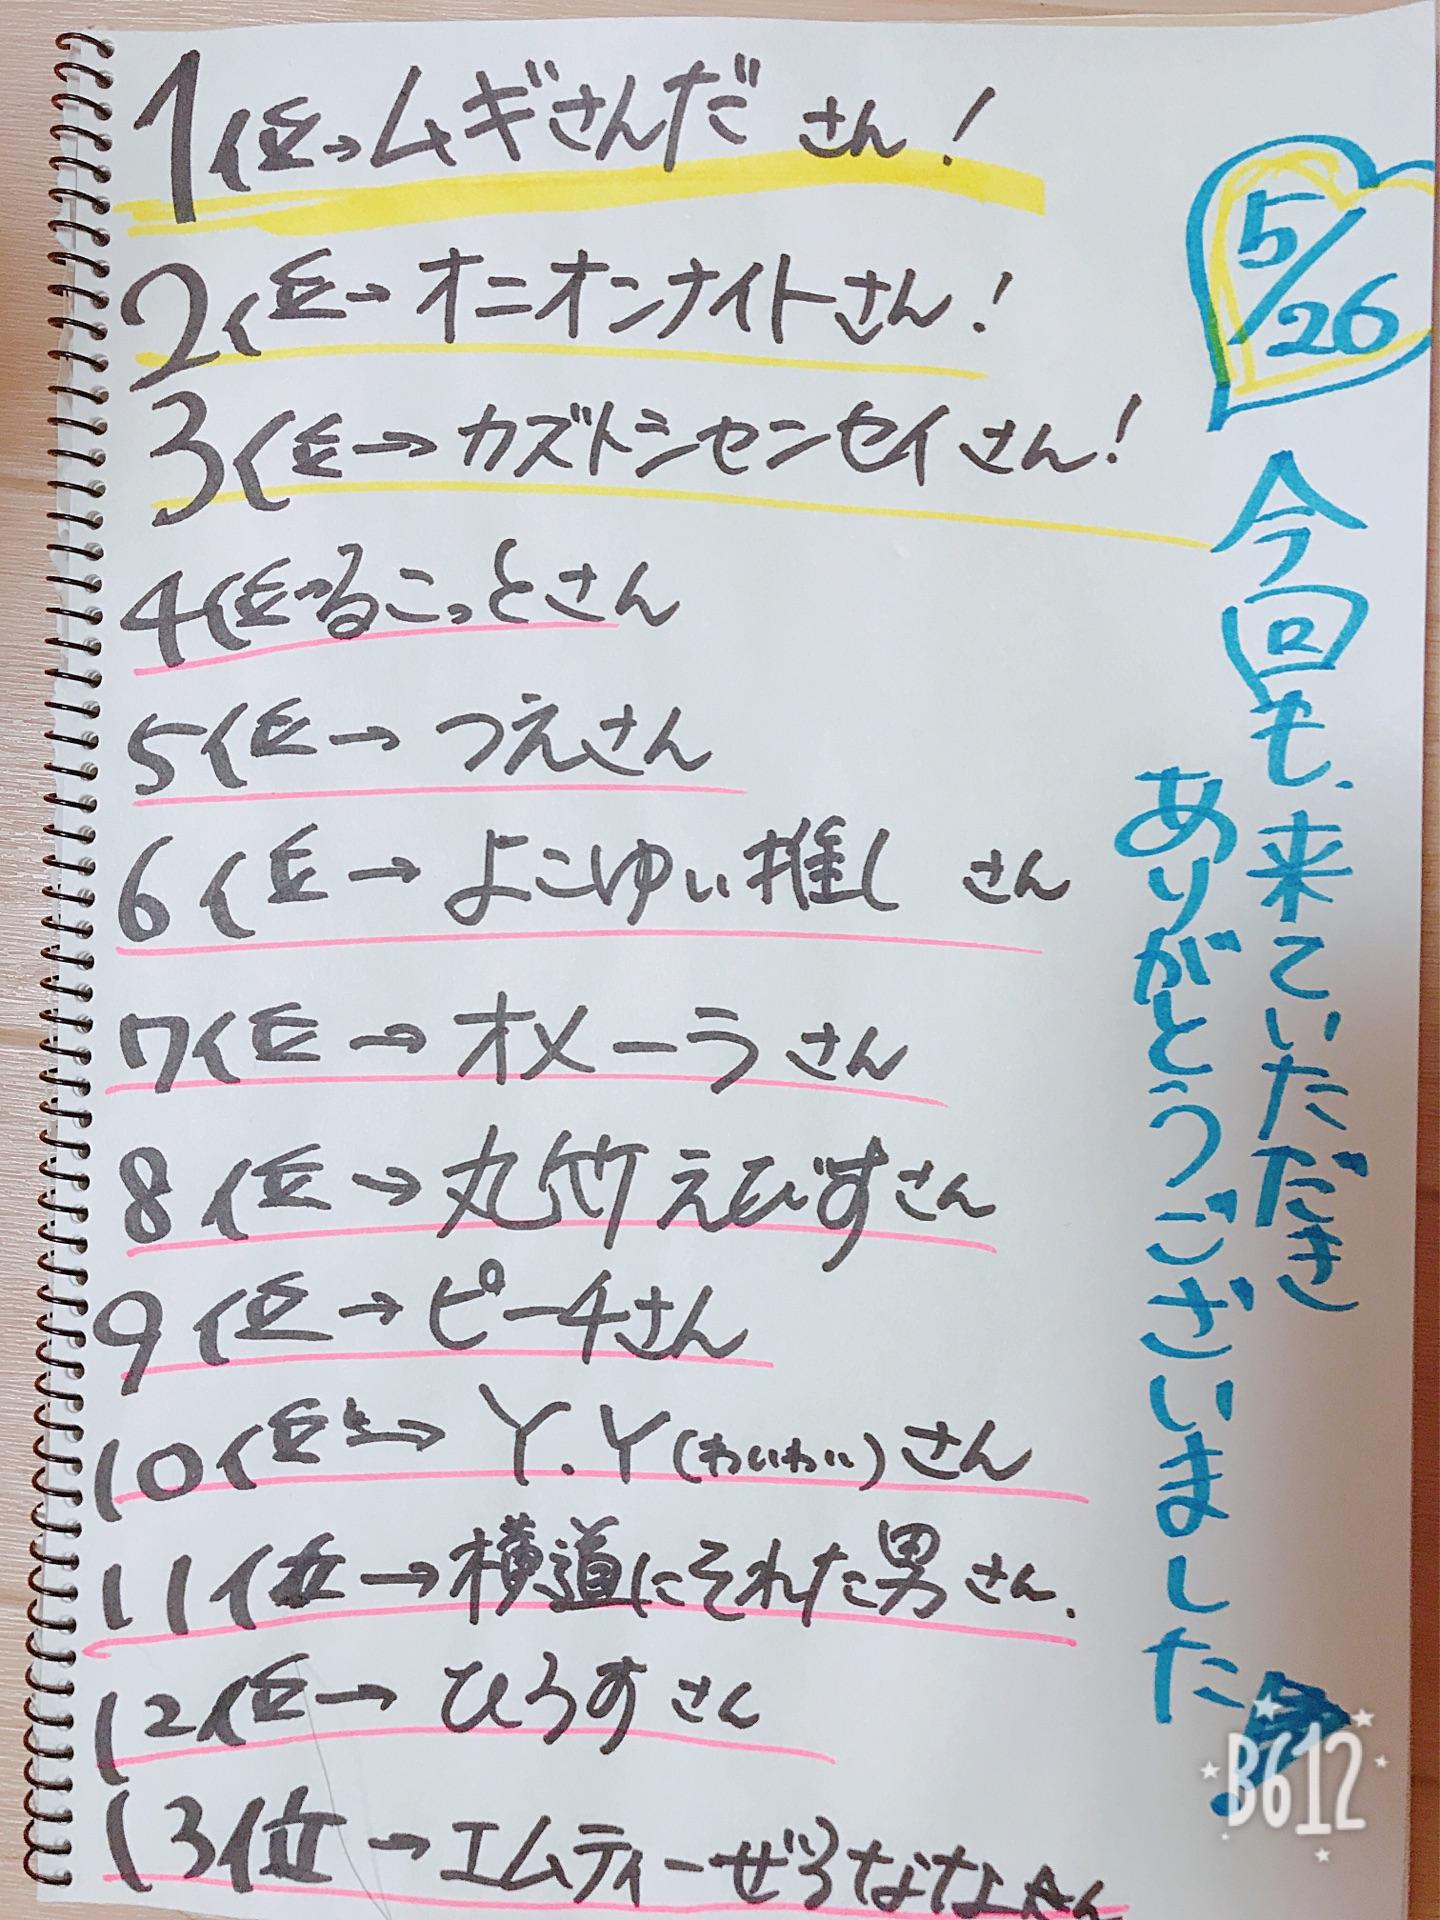 1位→ムギさんだ さん!
2位→オニオンナイトさん!
3位→カズトシセンセイさん!
4位→るこっとさん
5位→つえさん
6位→よこゆい推し さん
7位→オメーラさん
8位→丸竹えびすさん
9位→ピーチさん
10位→Y.Y(わいわい)さん
11位→横道にそれた男さん.
12位→ひろすさん
13位→エムティーぜろななさん
5/26
今回も、来ていただき
ありがとうございました
B612